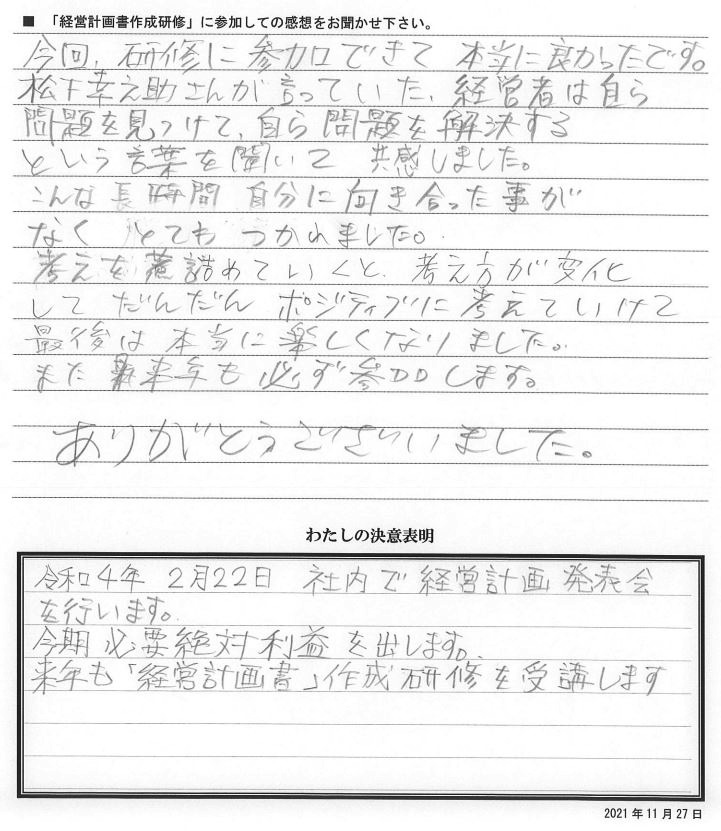 ■ 「経営計画書作成研修」に参加しての感想をお聞かせ下さい。
今回、研修に参加できて 本当に良かったです。
松下幸之助さんが言っていた、経営者は自ら
問題を見つけて、自ら問題を解決する
という言葉を聞いて 共感しました。
こんな長時間 自分に向き合った事が
なく とても つかれました。
考えを煮詰めていくと、考え方が変化
して だんだん ポジティブに考えていけて
最後は 本当に 楽しくなりました。
また 来年も 必ず参加します。
ありがとうございました。
わたしの決意表明
令和4年 2月22日 社内で 経営計画 発表会
を行います。
今期 必要絶対利益 を出します。
来年も「経営計画書」作成研修を受講します
2021年11月27日